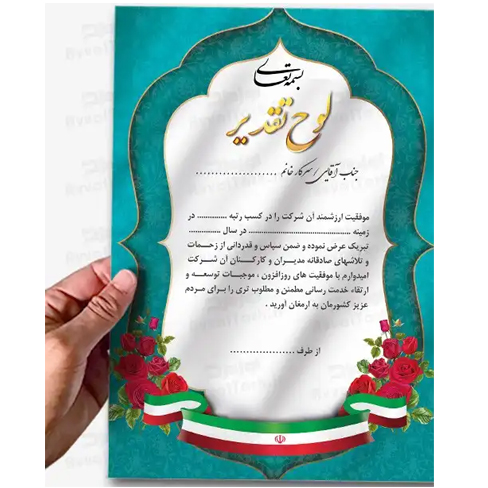 بسمه تعالی
لوح تقدیر
جناب آقای / سرکار خانم .....................
موفقیت ارزشمند آن شرکت را در کسب رتبه .............. در
زمینه ................................................ در سال ...............
تبریک عرض نموده و ضمن سپاس و قدردانی از زحمات
و تلاشهای صادقانه مدیران و کارکنان آن شرکت
امیدوارم با موفقیت های روزافزون ، موجبات توسعه و
ارتقاء خدمت رسانی مطمئن و مطلوب تری را برای مردم
عزیز کشورمان به ارمغان آورید .
از طرف ....................